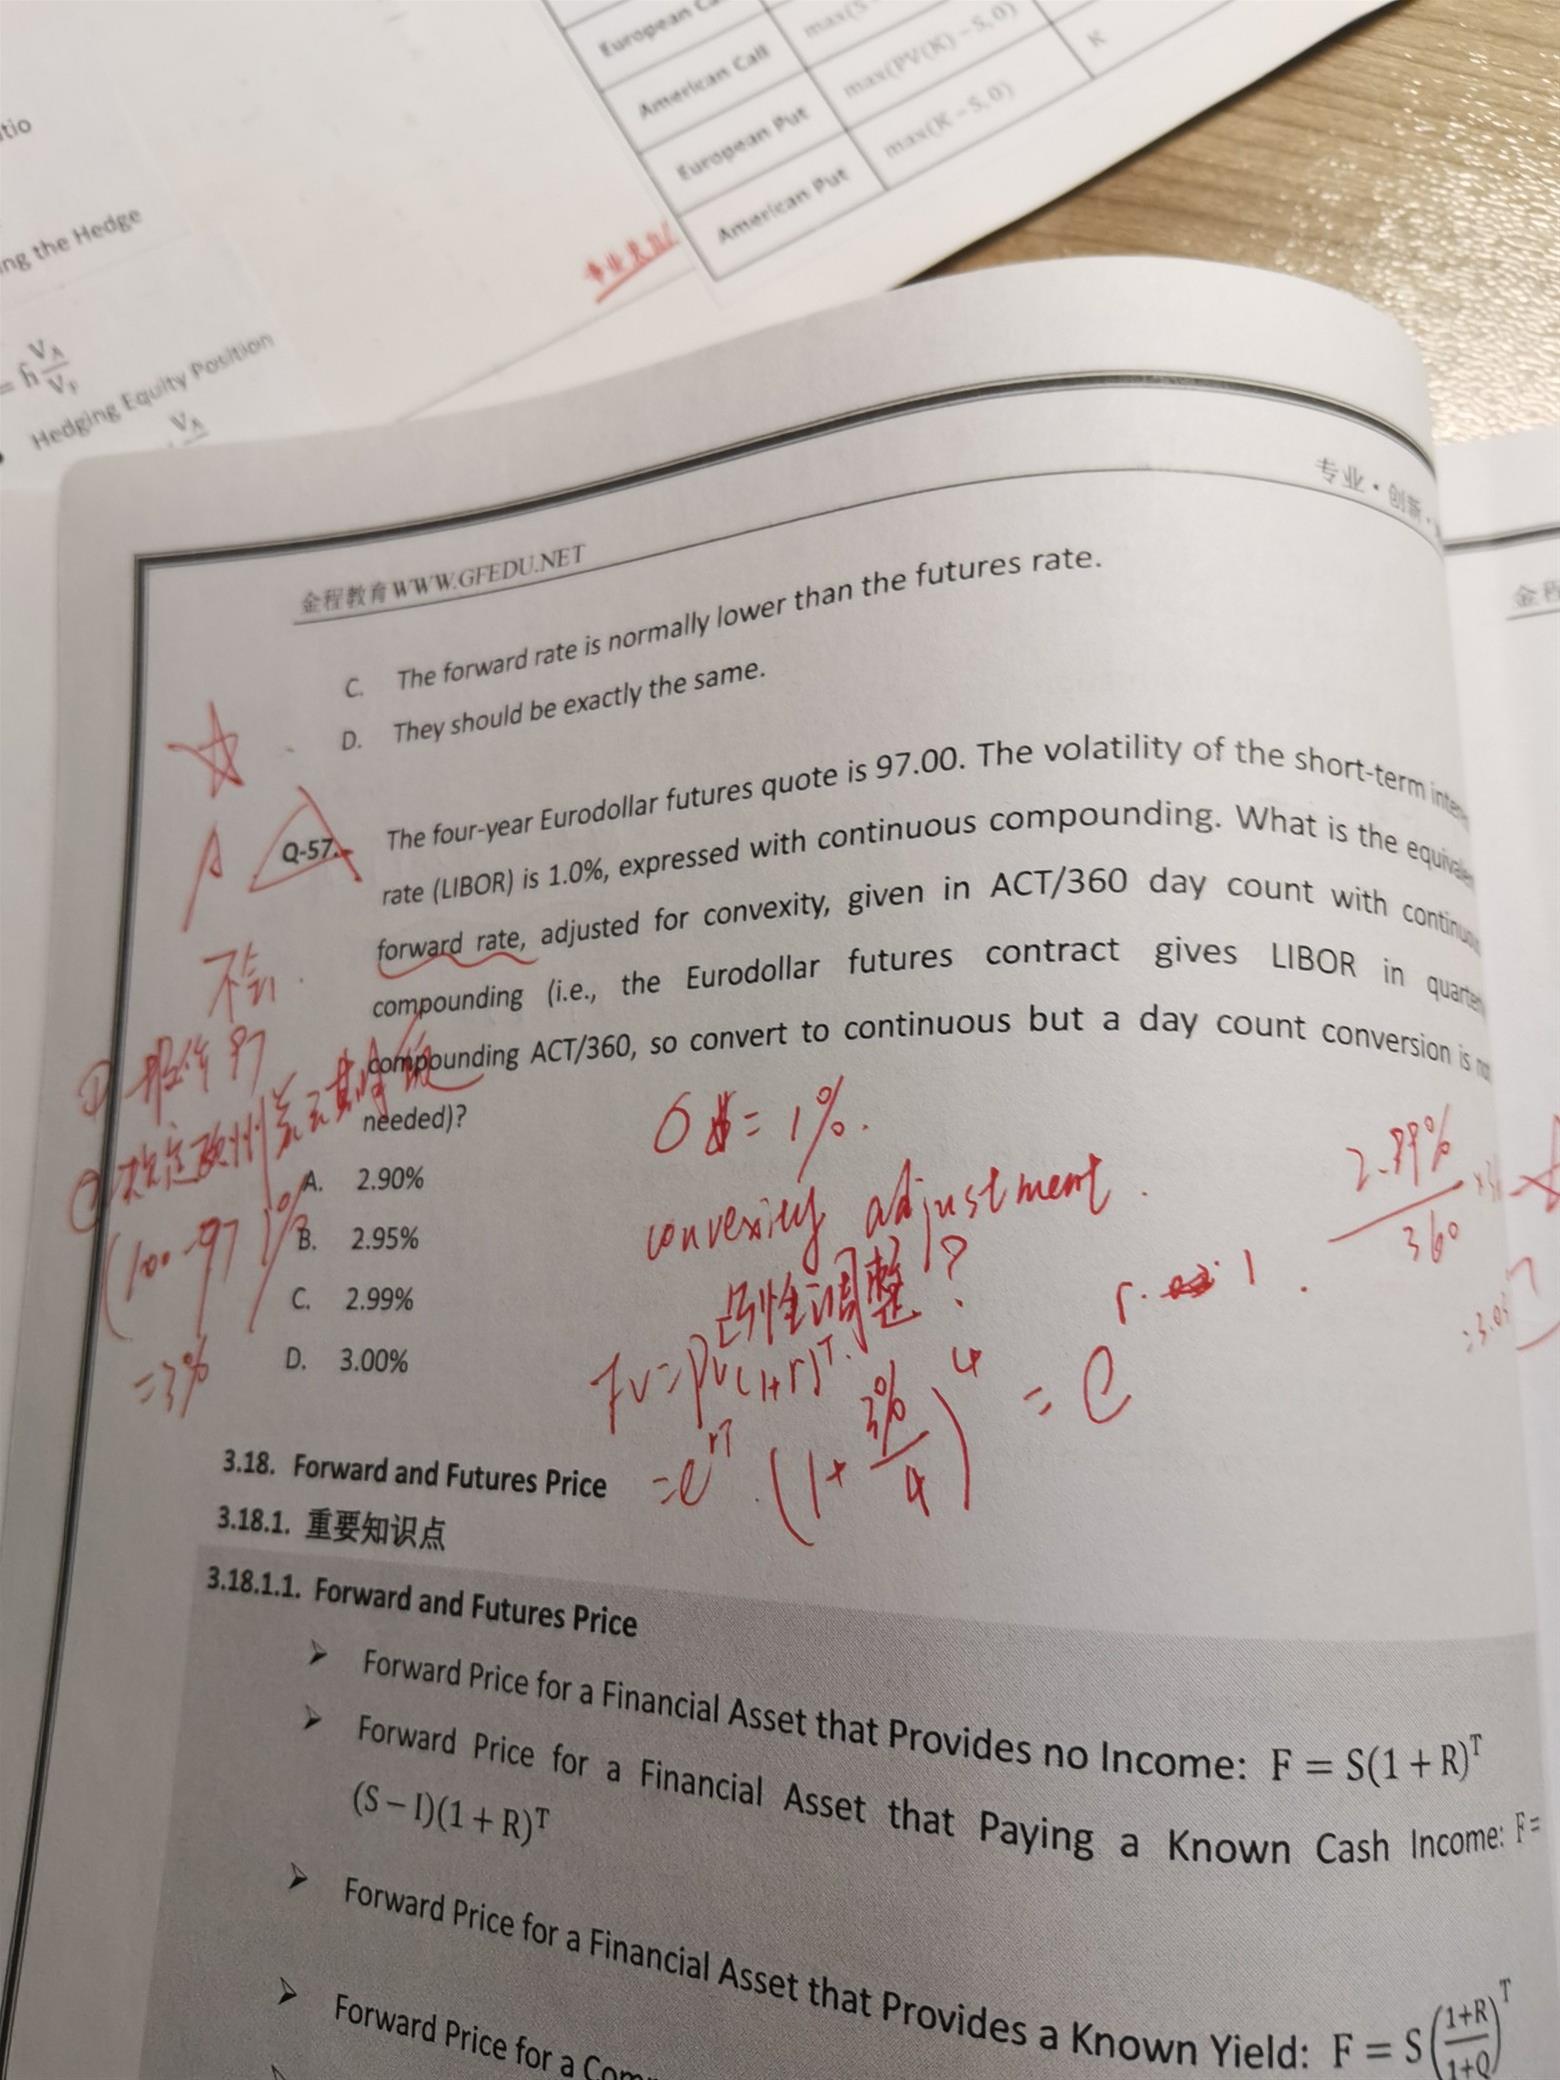 European
max(S
American Call
max(PV(K) – S, 0)
K
European Put
max(K – S, 0)
American Put
tio
ng the Hedge
= h V_A / V_F
Hedging Equity Position
V_A
专业·创新·
金程教育WWW.GFEDU.NET
C. The forward rate is normally lower than the futures rate.
D. They should be exactly the same.
Q-57. The four-year Eurodollar futures quote is 97.00. The volatility of the short-term
rate (LIBOR) is 1.0%, expressed with continuous compounding. What is the
forward rate, adjusted for convexity, given in ACT/360 day count with
compounding (i.e., the Eurodollar futures contract gives LIBOR in
compounding ACT/360, so convert to continuous but a day count conversion is
needed)?
A. 2.90%
B. 2.95%
C. 2.99%
D. 3.00%
A
不会.
① 报价 97
(100-97)%
=3%
σ = 1%.
convexity adjustment.
凸性调整?
FV=PV(1+r)^T.
=e^rT. (1+ 3%/4)^4 = e^r·1.
2.99%/360
3.18. Forward and Futures Price
3.18.1. 重要知识点
3.18.1.1. Forward and Futures Price
➢ Forward Price for a Financial Asset that Provides no Income: F = S(1 + R)^T
➢ Forward Price for a Financial Asset that Paying a Known Cash Income: F =
(S – I)(1 + R)^T
➢ Forward Price for a Financial Asset that Provides a Known Yield: F = S((1+R)/(1+Q))^T
➢ Forward Price for a
金程